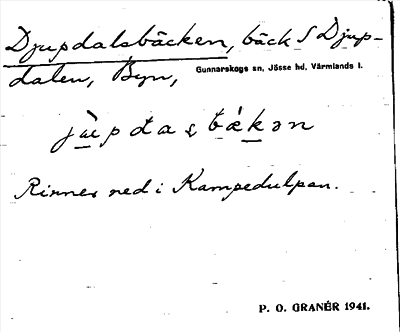 Djupdalsbäcken, bäck S Djup-
dalen, Byn, Gunnarskogs sn, Jösse hd, Värmlands l.
Rinner ned i Kampedulpan.
P. O. GRANÉR 1941.